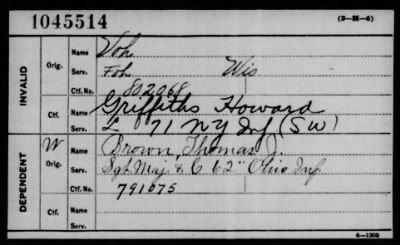 1045514
(3-H-4)
INVALID
Orig.
Name Voh
Serv. Foh Wis
Ctf. No. 802068
Ctf.
Name Griffiths Howard
Serv. L 71 NY Inf (SW)
DEPENDENT
W
Orig.
Name Brown, Thomas J.
Serv. Sgt. Maj. & C 62" Ohio Inf
Ctf. No. 791075
Ctf.
Name
Serv.